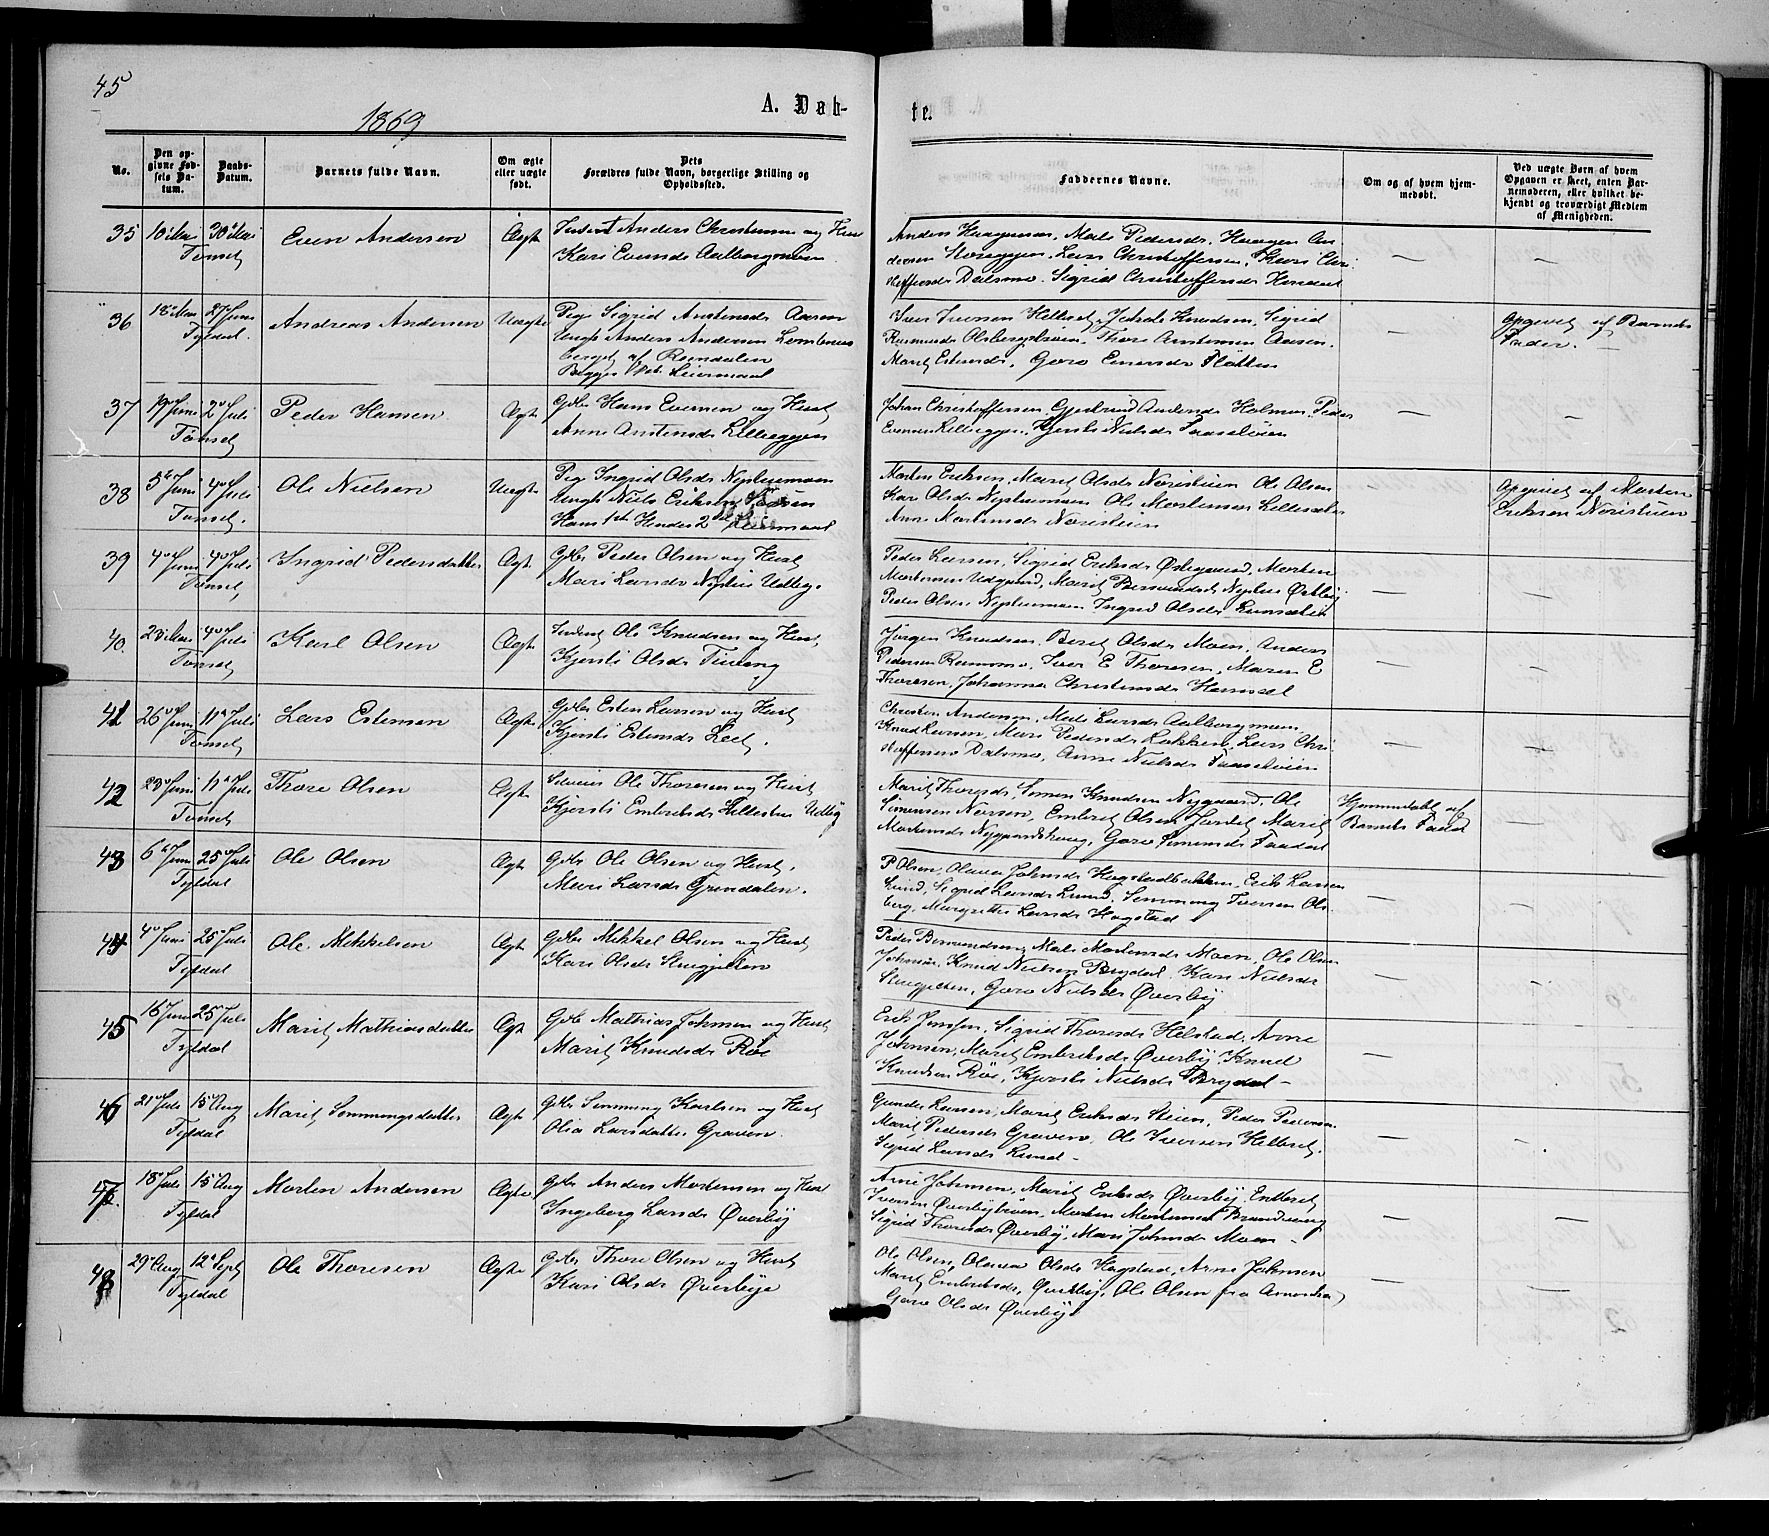 45
1869
A. Døb-
te.
No.
Den op-
givne Fød-
sels Da-
tum.
Daabs-
Datum.
Barnets fulde Navn.
Om ægte
eller uægte
født.
Dets
Forældres fulde Navn, borgerlige Stilling og
Opholdssted.
Faddernes Navne.
Om og af hvem hjem-
medøbt.
Ved uægte Børn af hvem
Opgaven er skeet, enten Bar-
nemoderen, eller hvilket be-
kjendt og troværdigt Medlem
af Menigheden.
35 10 Mai 30 Mai Even Andersen Ægte Anders Christensen og Hust
Tønset Kari Evensdr Aalborgmoen
Anders Haagensen, Mali Pedersdr, Haagen An-
dersen Storeggen, Lars Christoffersen, Kari Chri-
stoffersdr Dalsmo. Sigrid Christoffersdr
36 18 Mai 27 Juni Andreas Andersen Uægte Pige Sigrid Anstensdr Aasen
Tyldal. Ungk Anders Andersen
af Rendalen
Begges 1ste Leiermaal
Iver Iversen Hellset, Johde Knudsen, Sigrid
Rasmusdr Olsbergsbroen, Thore Anstensen Aasen.
Marit Estensdr, Goro Einersdr Fløtten
Opgivet af Barnets
Fader.
37 19 Juni 2 Juli Peder Hansen Ægte Gdbr Hans Evensen og Hust
Tønset Anne Anstensdr Lilleeggen
Johan Christoffersen, Gjertrud Andersdr Holmen, Peder
Evensen Lilleeggen, Kjersti Nielsdr
38 5 Juni 4 Juli Ole Nielsen Uægte Pige Ingrid Olsdr Nyhusmoen
Tønset. Ungk Niels Eriksen
Hans 1ste Hendes 2det Leiermaal
Morten Eriksen, Marit Olsdr Noristuen Ole Olsen
Kari Olsdr Nyhusmoen Ole Mortensen
Anne Mortensdr Noristuen
Opgivet af Morten
Eriksen Noristuen
39 4 Juni 4 Juli Ingrid Pedersdatter Ægte Gdbr Peder Olsen og Hust
Tønset, Mari Larsdr Nyhus Udby.
Peder Larsen, Sigrid Eriksdr Østegaard, Morten
Mortensen Udgaard, Marit Nyhus Østby
Peder Olsen Nyhusmoen Ingrid Olsdr
40. 23 Mai 4 Juli Karl Olsen Ægte Ole Knudsen og Hust,
Tønset Kjersti Olsdr
Jørgen Knudsen, Berit Olsdr Moen, Anders
Pedersen Ramsmo, Iver E Thoresen, Maren E
Thoresen, Johanna Christensdr
41 26 Juni 11 Juli Lars Estensen Ægte Gdbr Esten Larsen og Hust
Tønset Kjersti Estensdr Leet.
Christen Andersen, Mali Larsdr Aalborgmoen,
Knud Larsen, Mari Pedersdr Bakken, Lars Chri-
stoffersen Dalsmo, Anne Nielsdr
42 23 Juni 11 Juli Thore Olsen Ægte Ole Thoresen og Hust
Tønset Kjersti Embriksdr Udby
Marit Thoresdr, Simen Knudsen Nygaard, Ole
Simensen Nersen, Embret Olsen, Marit
Mortensdr Nygaardshaug, Goro Simensdr
Hjemmedøbt af
Barnets Fader
43 6 Juni 25 Juli Ole Olsen Ægte Gdbr Ole Olsen og Hust.
Tyldal Mari Larsdr Grindalen.
P Olsen, Olava Johnsdr Hagstadbakken, Erik Larsen
Lund, Sigrid Larsdr Lund, Semming Iversen Ols-
berg, Margrethe Larsdr Hagstad
44 4 Juni 25 Juli Ole Mikkelsen Ægte Gdbr Mikkel Olsen og Hust
Tyldal Kari Olsdr
Peder Bersvendsen, Mali Mortensdr Moen, Ole Olsen
Knud Nielsen Brydal, Kari Nielsdr
Goro Nielsdr Øverby
45 16 Juni 25 Juli Marit Mathiasdatter Ægt Gdbr Mathias Johnsen og Hust
Tyldal Marit Knudsdr Røe
Erik Jonsen, Sigrid Thoresdr Helstad, Arne
Johnsen, Marit Embriksdr Øverby, Knud
Knudsen Røe, Kjersti Nielsdr Brydal
46 21 Juli 15 Aug Marit Semmingsdatter Ægte Gdbr Semming Karlsen og Hust
Tyldal Olia Larsdatter Graven.
Gunder Larsen, Marit Eriksdr Steien, Peder Pedersen
Marit Pedersdr Graven, Ole Iversen Hellset,
Sigrid Larsdr Lund
47. 18 Juli 15 Aug Morten Andersen Ægte Gdbr Anders Mortensen og Hust
Tyldal Ingeborg Larsdr Øverby
Arne Johnsen, Marit Eriksdr Øverby, Embret
Iversen Øverbybroen, Morten Mortensen Brandvang
Sigrid Thoresdr Øverby, Mari Johnsdr Moen
48 29 Aug 12 Sept Ole Thoresen Ægte Gdbr Thore Olsen og Hust
Tyldal Kari Olsdr Øverbye
Ole Olsen, Olava Olsdr Hagstad, Arne Johnsen
Marit Embriksdr, Øverby, Ole Olsen fra Amerika,
Goro Olsdr Øverby